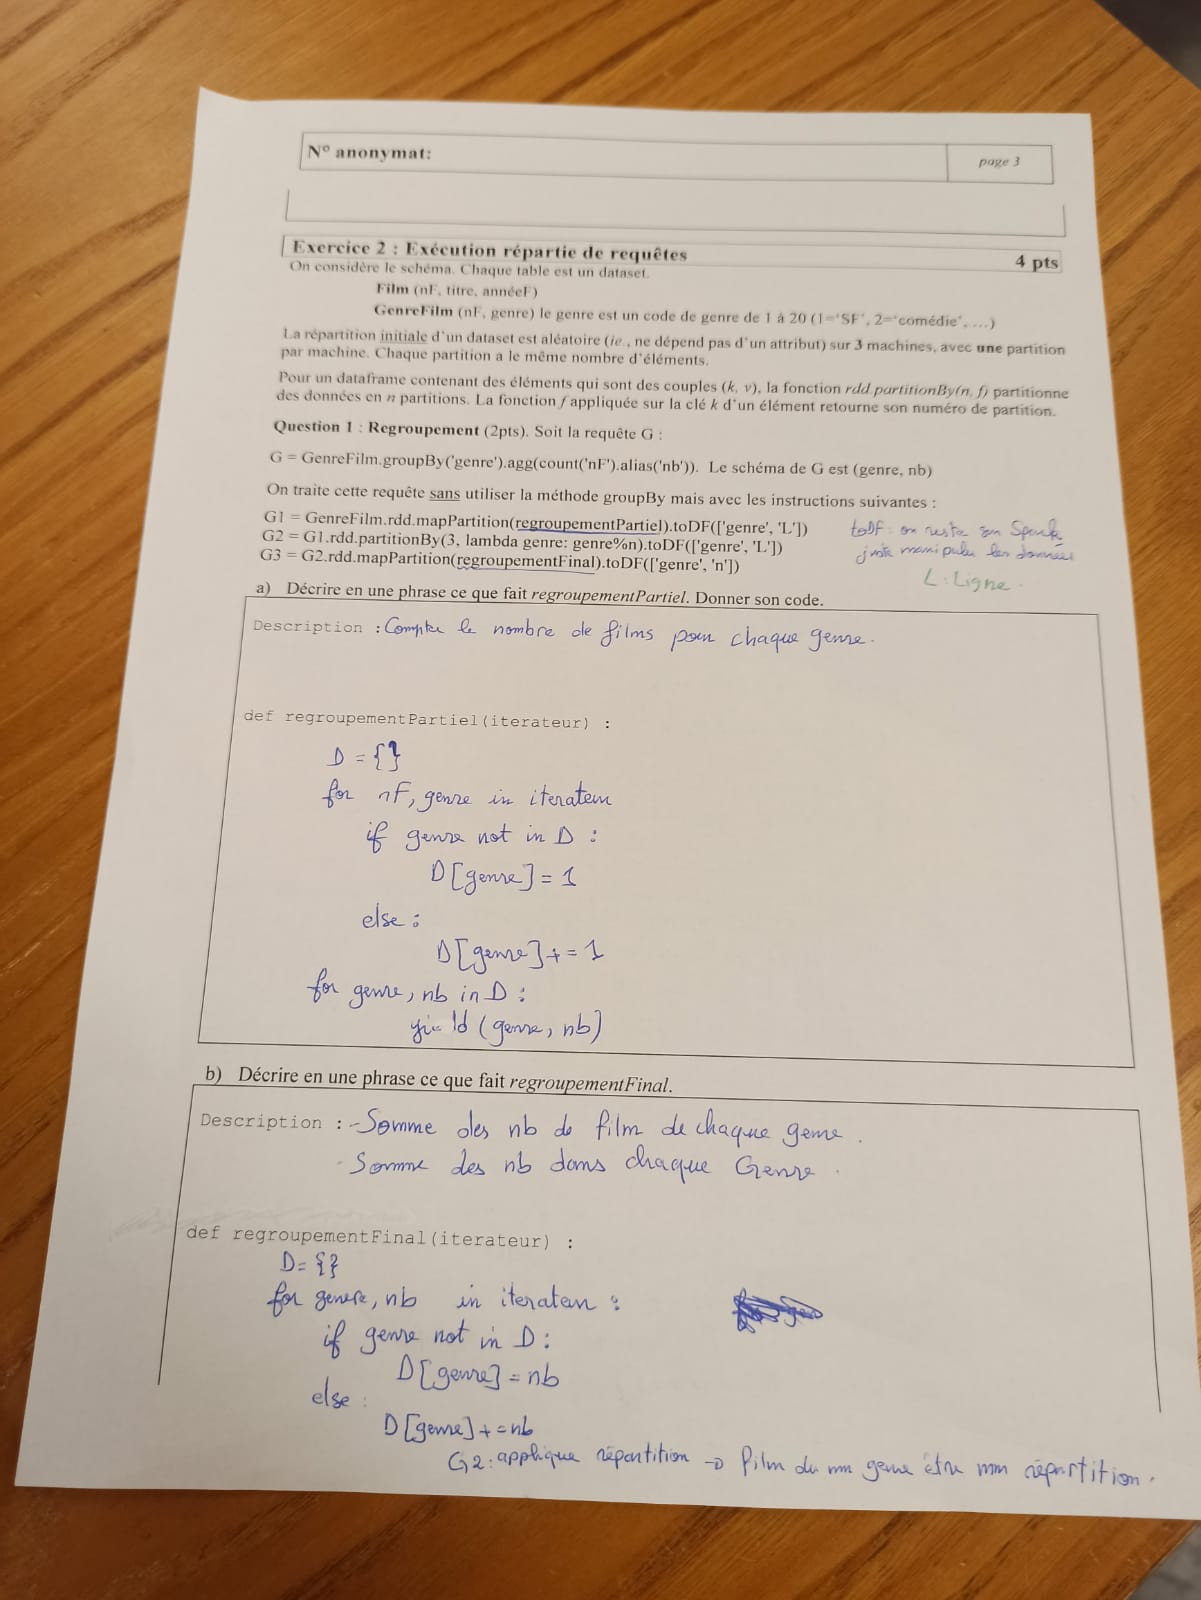 N° anonymat:
page 3
Exercice 2 : Exécution répartie de requêtes
4 pts
On considère le schéma. Chaque table est un dataset.
Film (nF, titre, annéeF)
GenreFilm (nF, genre) le genre est un code de genre de 1 à 20 (1='SF', 2='comédie', ...)
La répartition initiale d'un dataset est aléatoire (ie., ne dépend pas d'un attribut) sur 3 machines, avec une partition
par machine. Chaque partition a le même nombre d'éléments.
Pour un dataframe contenant des éléments qui sont des couples (k, v), la fonction rdd.partitionBy(n, f) partitionne
des données en n partitions. La fonction f appliquée sur la clé k d'un élément retourne son numéro de partition.
Question 1 : Regroupement (2pts). Soit la requête G :
G = GenreFilm.groupBy('genre').agg(count('nF').alias('nb')). Le schéma de G est (genre, nb)
On traite cette requête sans utiliser la méthode groupBy mais avec les instructions suivantes :
G1 = GenreFilm.rdd.mapPartition(regroupementPartiel).toDF(['genre', 'L'])
G2 = G1.rdd.partitionBy(3, lambda genre: genre%n).toDF(['genre', 'L'])
G3 = G2.rdd.mapPartition(regroupementFinal).toDF(['genre', 'n'])
toDF : on reste son Spark
juste manipuler les données
L : Ligne .
a) Décrire en une phrase ce que fait regroupementPartiel. Donner son code.
Description : Compter le nombre de films pour chaque genre.
def regroupementPartiel(iterateur) :
D = {}
for nF, genre in iterateur
if genre not in D :
D[genre] = 1
else :
D[genre] += 1
for genre, nb in D :
yield (genre, nb)
b) Décrire en une phrase ce que fait regroupementFinal.
Description : - Somme des nb de film de chaque genre .
- Somme des nb dans chaque Genre .
def regroupementFinal(iterateur) :
D= {}
for genre, nb in iterateur :
if genre not in D :
D[genre] = nb
else :
D[genre] += nb
G2 : applique répartition → film du mm genre être mm répartition .